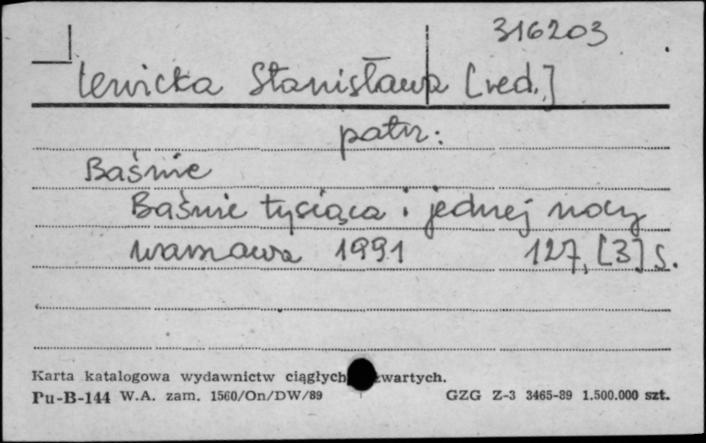 316203
Lewicka Stanisława [red.]
patrz:
Baśnie
Baśnie tysiąca i jednej nocy
Warszawa 1991 127, [3] s.
Karta katalogowa wydawnictw ciągłych zwartych.
Pu-B-144 W.A. zam. 1560/On/DW/89 GZG Z-3 3465-89 1.500.000 szt.